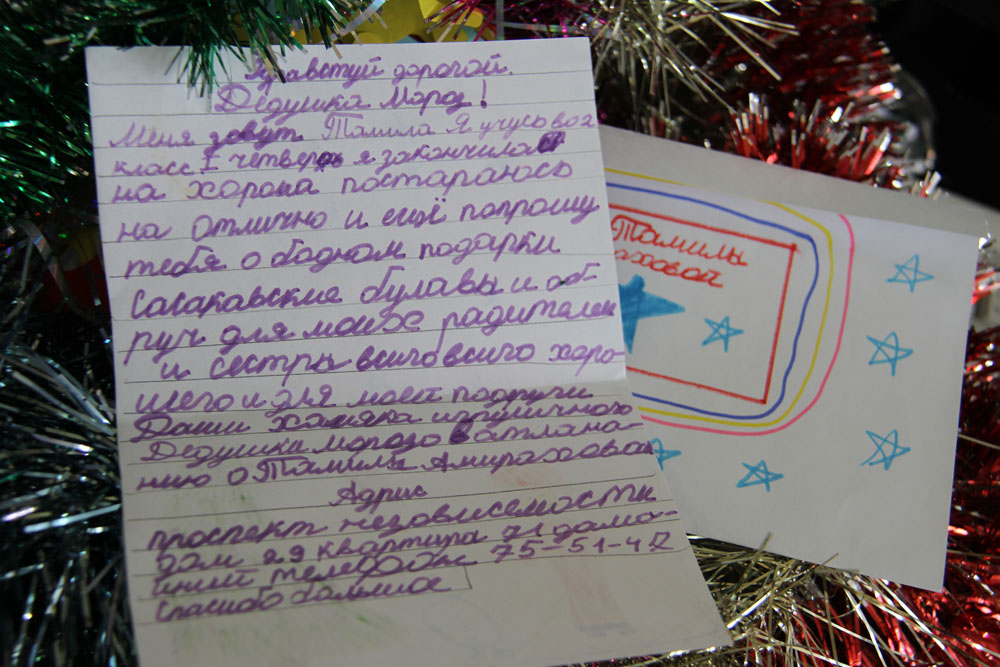 Здравстуй дорогой.
Дедушка Мороз!
Меня зовут Тамила Я учусь во 2
класс I четверь я закончила
на хорошо постараюсь
на отлично и ещё попрошу
тебя о бодном подарки
Сасакавские булавы и об
руч для моих радителей
и сестры всиго всиго харо-
шего и для моей подруги
Даши хомяка игрушичного
Дедушки морозо
нию о Тамилы Амираховой
Адрис
проспект незовисемости
дом 29 квартира 71 дома-
шний телефон 75-51-42
спасибо большое
Тамилы
аховой